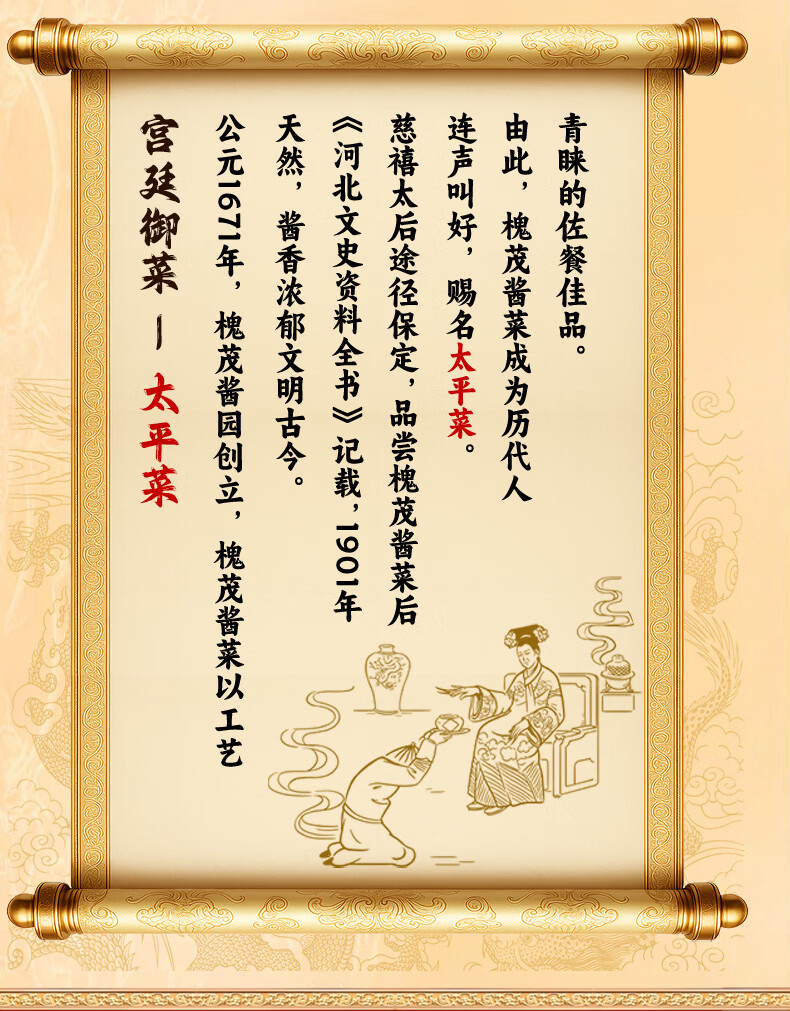 宫廷御菜 — 太平菜
公元1671年，槐茂酱园创立，槐茂酱菜以工艺
天然，酱香浓郁文明古今。
《河北文史资料全书》记载，1901年
慈禧太后途径保定，品尝槐茂酱菜后
连声叫好，赐名太平菜。
由此，槐茂酱菜成为历代人
青睐的佐餐佳品。